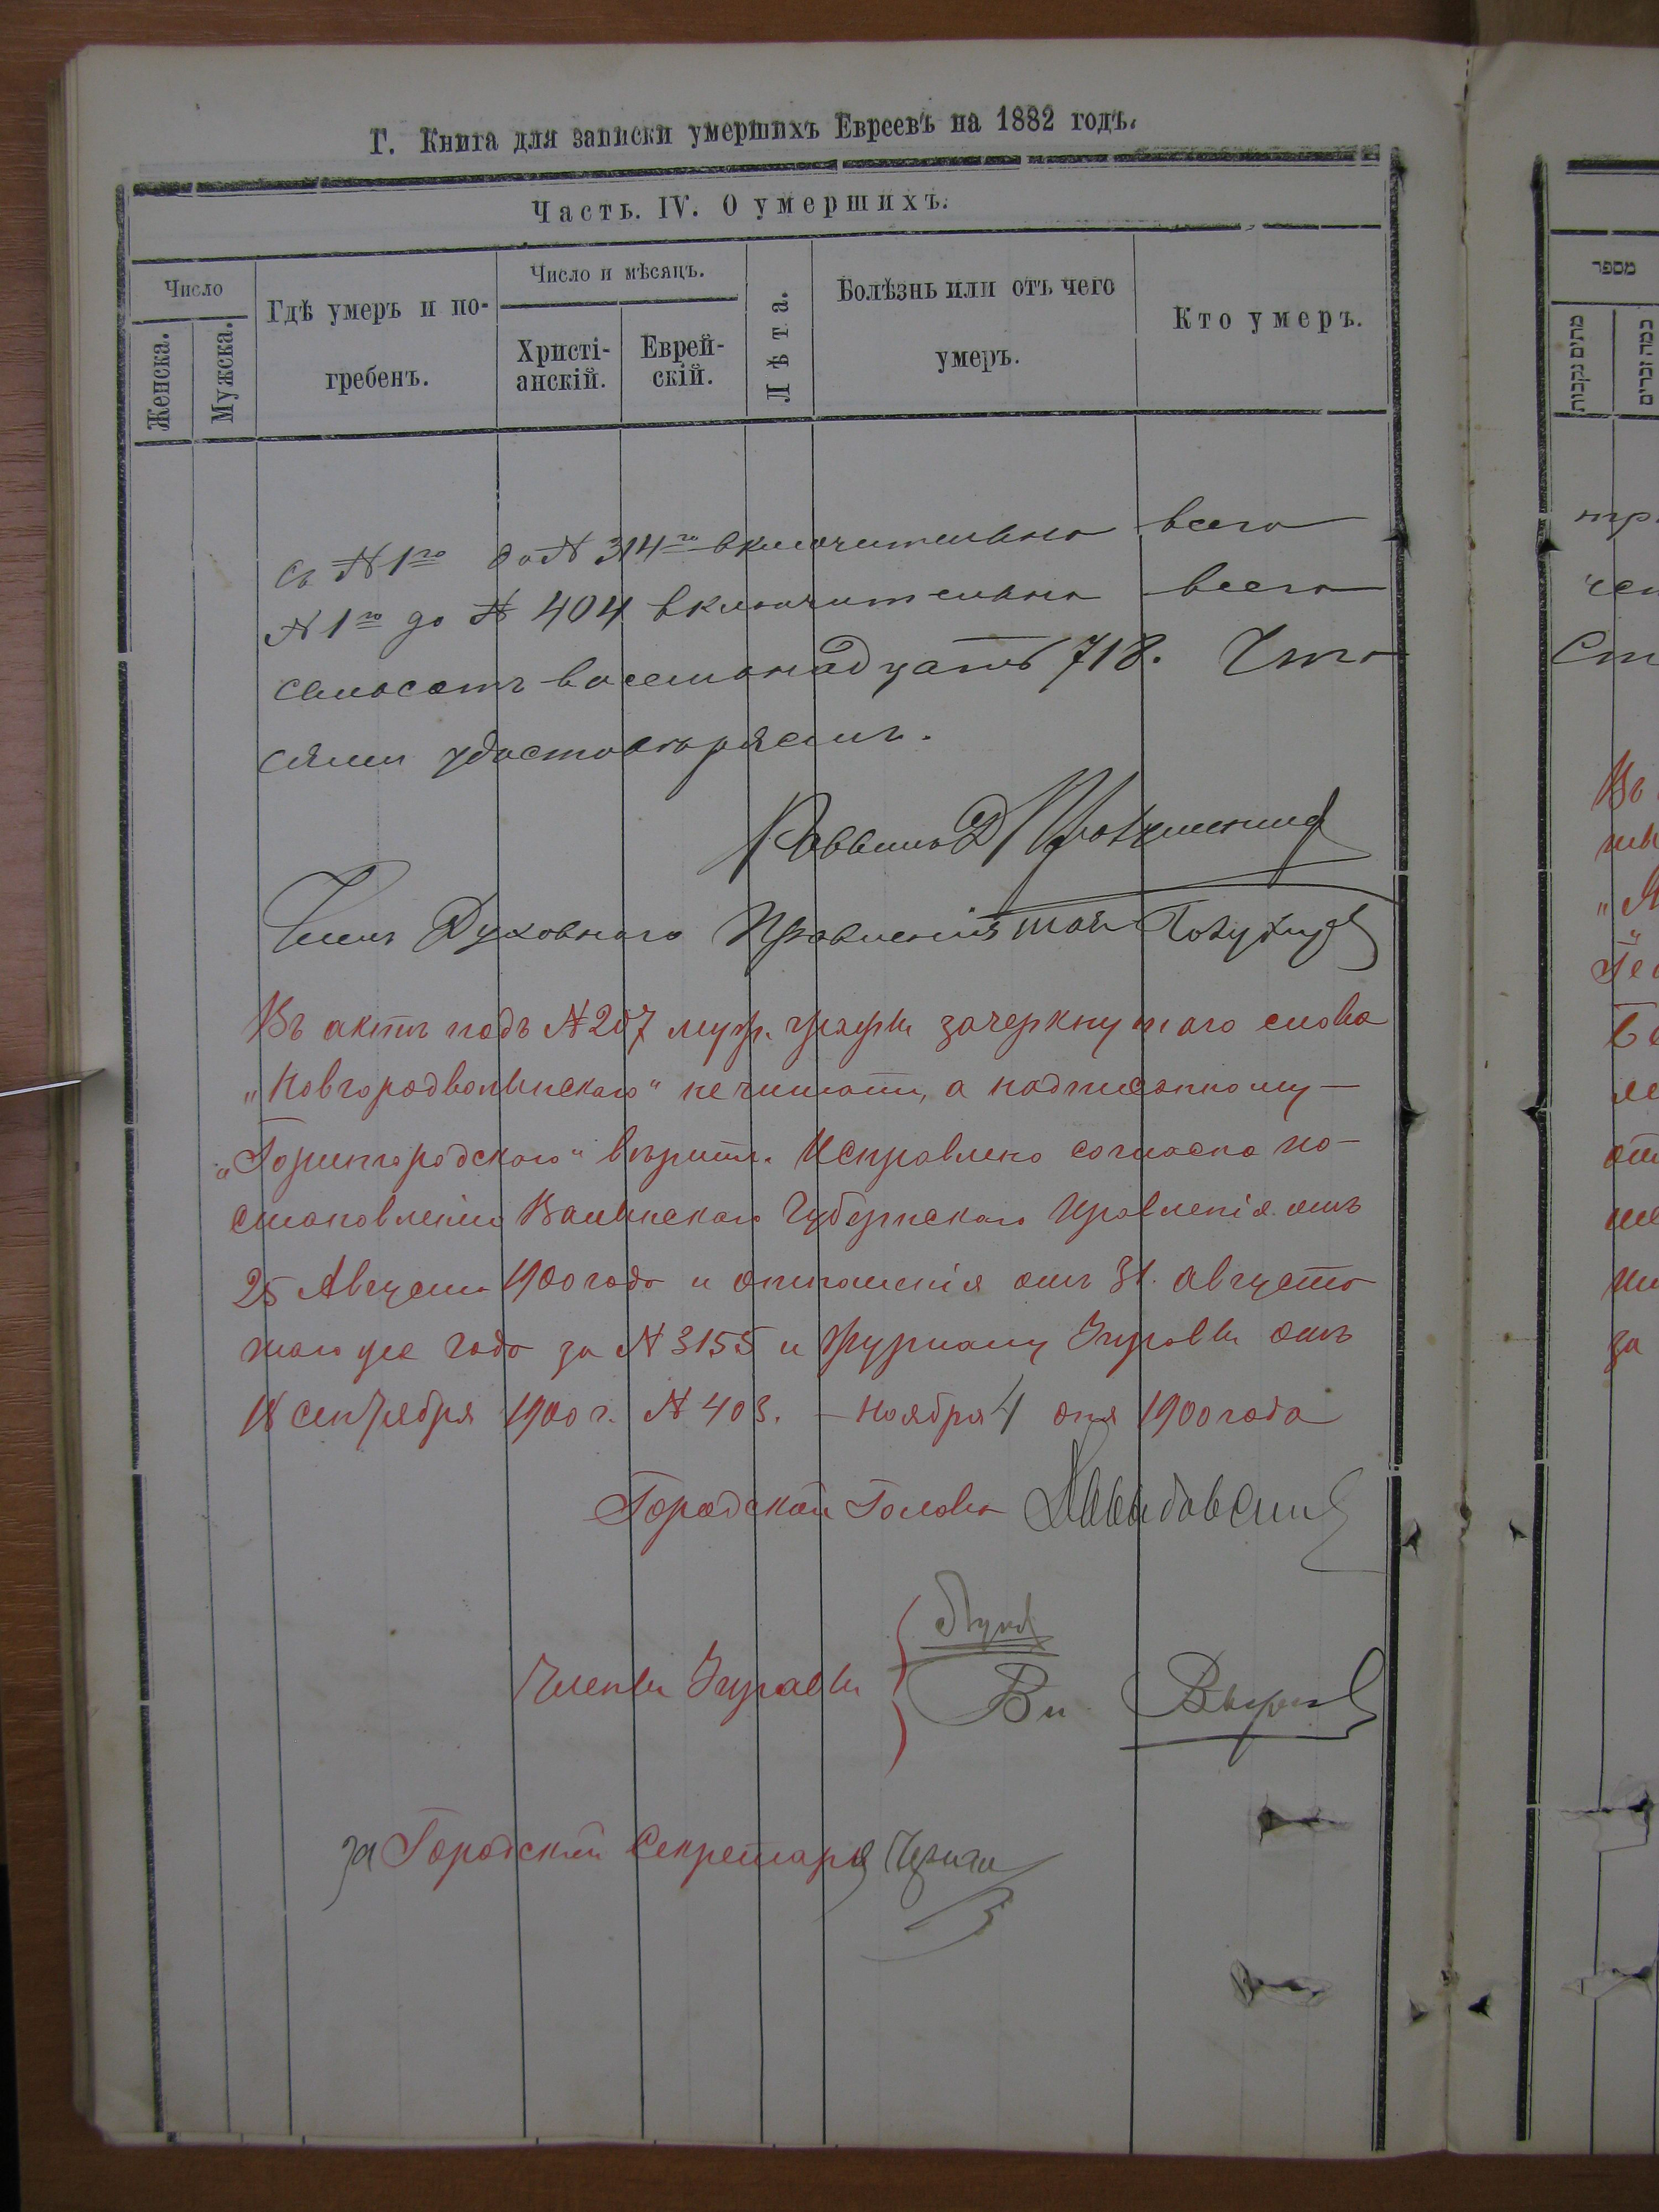 Г. Книга для записки умершихъ Евреевъ на 1882 годъ.
Часть. IV. О умершихъ.
Число
Женска.
Мужска.
Гдѣ умеръ и по-
гребенъ.
Число и мѣсяцъ.
Христі-
анскій.
Еврей-
скій.
Лѣта.
Болѣзнь или отъ чего
умеръ.
Кто умеръ.
съ №1го до № 314го включительно всего
№1го до № 404 включительно всего
семьсотъ восемьнадцать 718. Что
симъ удостовѣряемъ.
Раввинъ
Членъ Духовнаго Правленія
Въ актѣ подъ №207 муж. графы зачеркнутаго слова
„Новгородволынскаго" не читать, а надписанному —
„Горингородскаго" вѣрить. Исправлено согласно по-
становленію Волынскаго Губернскаго Правленія отъ
25 Августа 1900 года и отношенія отъ 31. августа
того же года за №3155 и журналу Управы отъ
18 сентября 1900 г. № 403. — Ноября 4 дня 1900 года
Городской Голова
Члены Управы
за Городской Секретаря
מספר
מתים נקבות
כמה זכרים
Въ